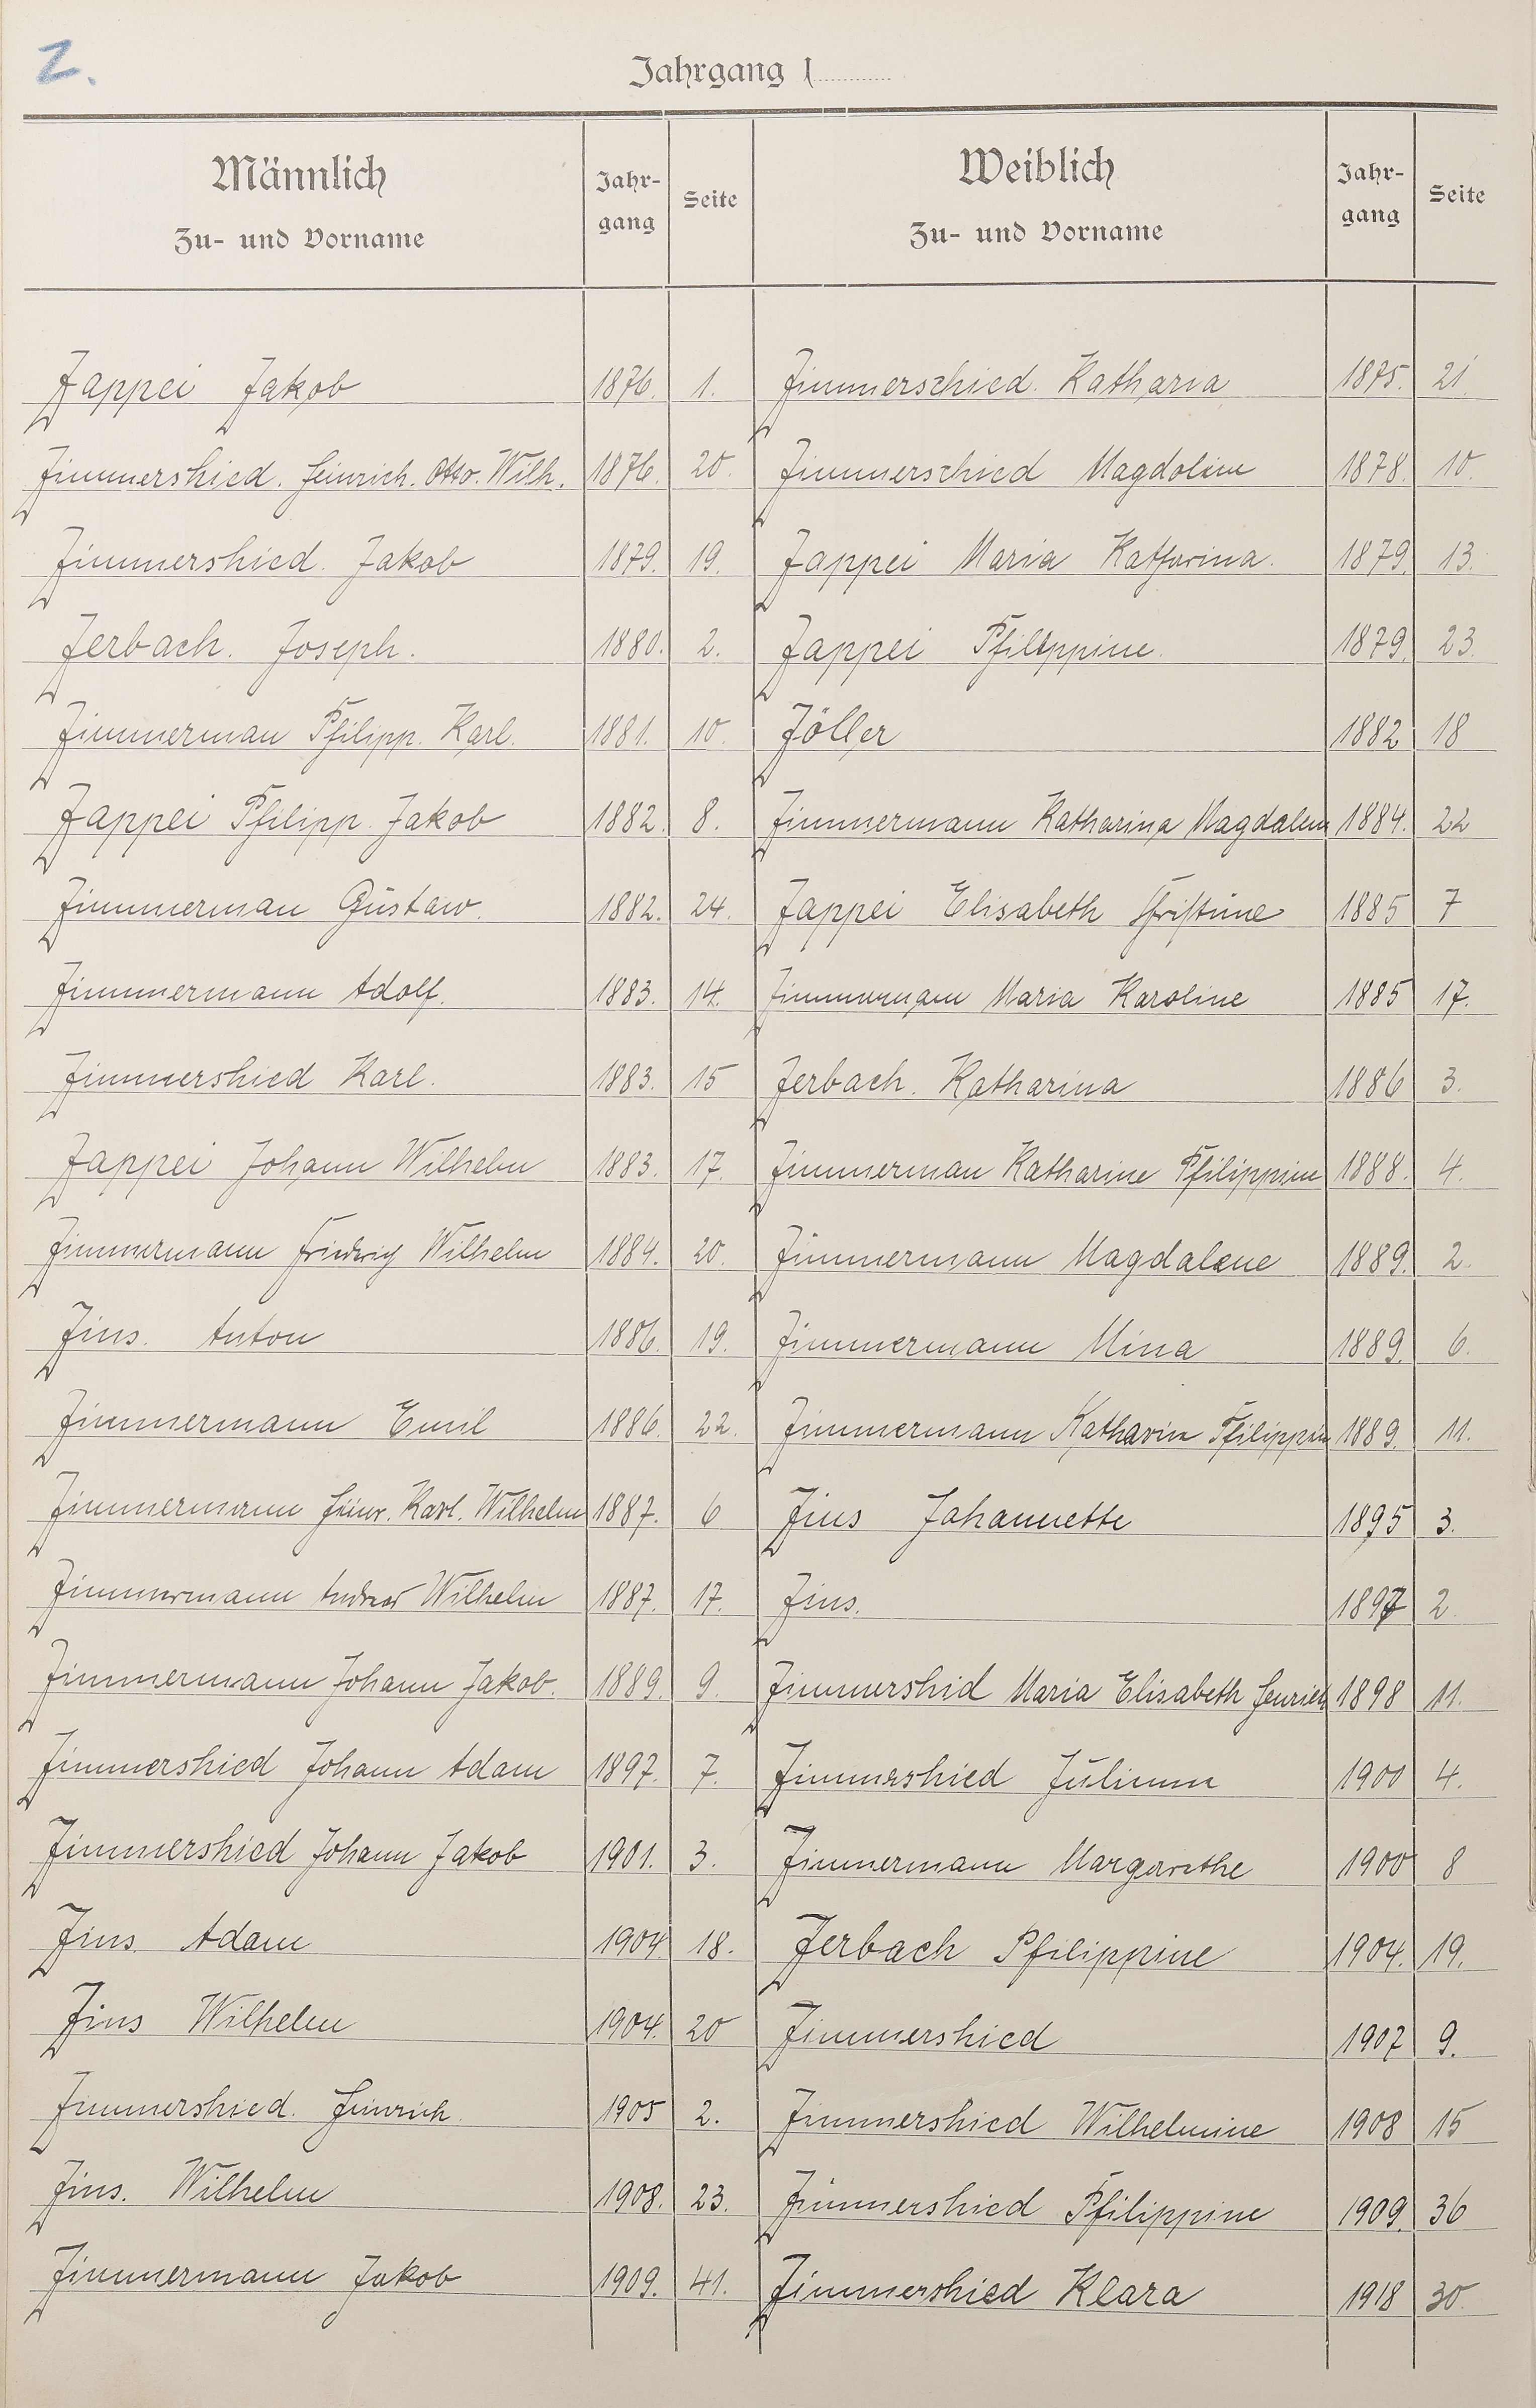 Z.
Jahrgang 1
Männlich
Zu- und Vorname
Jahr-
gang
Seite
Weiblich
Zu- und Vorname
Jahr-
gang
Seite
Zappei Jakob 1876. 1. Zimmerschied. Katharia 1875. 21.
Zimmershied. Heinrich. Otto. Wilh. 1876. 20. Zimmerschied Magdoline 1878. 10.
Zimmershied. Jakob 1879. 19. Zappei Maria Katharina. 1879. 13.
Zerbach. Joseph. 1880. 2. Zappei Philippine. 1879. 23.
Zimmerman Philipp. Karl. 1881. 10. Zöller 1882 18
Zappei Philipp. Jakob 1882. 8. Zimmermann Katharina Magdalene 1884. 22
Zimmerman Gustaw. 1882. 24. Zappei Elisabeth Christine 1885 7
Zimmermann Adolf. 1883. 14. Zimmermann Maria Karoline 1885 17.
Zimmershied Karl. 1883. 15 Zerbach. Katharina 1886 3.
Zappei Johann Wilhelm 1883. 17. Zimmerman Katharine Philippine 1888. 4.
Zimmermann Friedrich Wilhelm 1884. 20. Zimmermann Magdalene 1889. 2.
Zins. Anton 1886. 19. Zimmermann Mina 1889. 6.
Zimmermann Emil 1886. 22. Zimmermann Katharin Philippin 1889. 11.
Zimmermann Heinr. Karl. Wilhelm 1887. 6 Zins Johannette 1895 3.
Zimmermann Andreas Wilhelm 1887. 17. Zins. 1897 2.
Zimmermann Johann Jakob. 1889. 9. Zimmershid Maria Elisabeth Henriet 1898 11.
Zimmershied Johann Adam 1897. 7. Zimmershied 1900 4.
Zimmershied Johann Jakob 1901. 3. Zimmermann Margarethe 1900 8
Zins. Adam 1904 18. Zerbach Philippine 1904. 19.
Zins Wilhelm 1904. 20 Zimmershied 1907 9.
Zimmershied. Heinrich. 1905 2. Zimmershied Wilhelmine 1908 15
Zins. Wilhelm 1908. 23. Zimmershied Philippine 1909. 36
Zimmermann Jakob 1909. 41. Zimmershied Klara 1918 30.